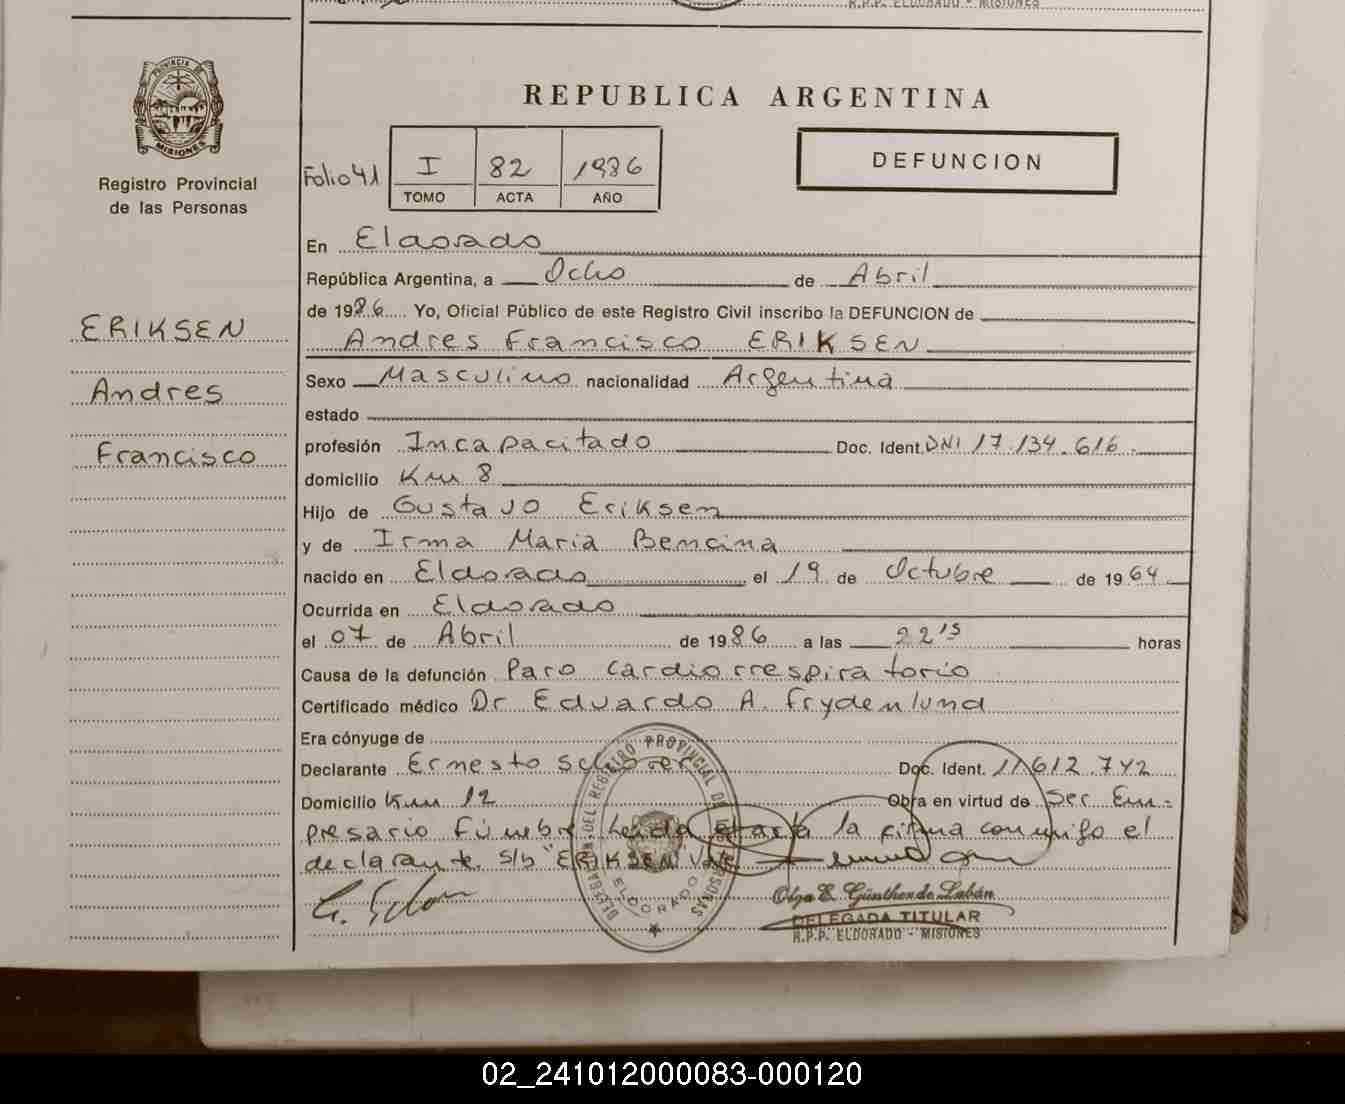 R.P.P. ELDORADO - MISIONES
PROVINCIA DE
MISIONES
Registro Provincial
de las Personas
ERIKSEN
Andres
Francisco
REPUBLICA ARGENTINA
Folio 41 I 82 1986
TOMO ACTA AÑO
DEFUNCION
En Eldorado
República Argentina, a Ocho de Abril
de 1986 Yo, Oficial Público de este Registro Civil inscribo la DEFUNCION de
Andres Francisco ERIKSEN
Sexo Masculino nacionalidad Argentina
estado
profesión Incapacitado Doc. Ident. DNI 17.134.616.
domicilio Km 8
Hijo de Gustavo Eriksen
y de Irma Maria Bencina
nacido en Eldorado el 19 de Octubre de 1964
Ocurrida en Eldorado
el 07 de Abril de 1986 a las 22 15 horas
Causa de la defunción Paro Cardiorrespiratorio
Certificado médico Dr Eduardo A. Frydenlund
Era cónyuge de
Declarante Ernesto Doc. Ident. 11612742
Domicilio Km 12 Obra en virtud de Ser Em-
presario Fúnebre Leida el acta la firma conmigo el
declarante. S/b "ERIKSEN" Vale
DELEGACION DEL REGISTRO PROVINCIAL DE PERSONAS
ELDORADO
Olga E. Günther de Labán
DELEGADA TITULAR
R.P.P. ELDORADO - MISIONES
02_241012000083-000120